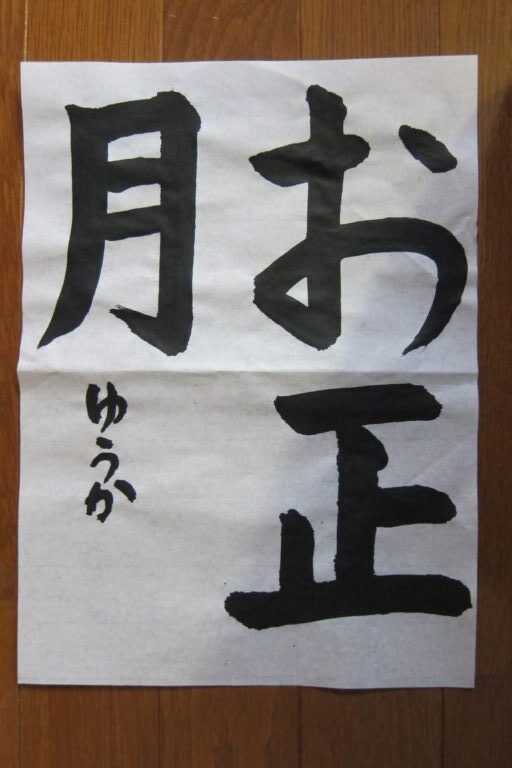 お正
月
ゆうか